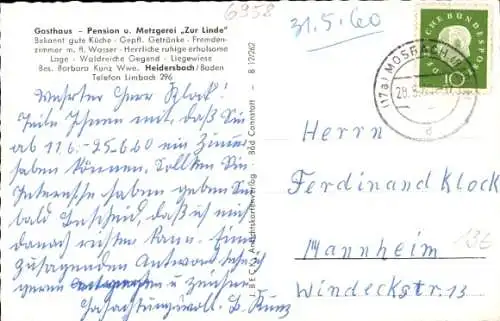 6958
Gasthaus - Pension u. Metzgerei „Zur Linde"
Bekannt gute Küche - Gepfl. Getränke - Fremden-
zimmer m. fl. Wasser - Herrliche ruhige erholsame
Lage - Waldreiche Gegend - Liegewiese
Bes. Barbara Kunz Wwe. Heidersbach/Baden
Telefon Limbach 296
Wehrter Herr Klock!
Teile Ihnen mit, daß Sie
ab 11.6.-25.6.60 ein Zimmer
haben können. Sollten Sie
Interesse haben geben Sie
bald Bescheid, daß ich mich
danach richten kann. Einer
zusagenden Antwort sehe ich
gerne entgegen u. zeichne
Hochachtungsvoll. B. Kunz
Ansichtskartenverlag · Bad Cannstatt - B 12/262
31.5.60
DEUTSCHE BUNDESPOST
10
(17a) MOSBACH
d
Herrn
Ferdinand Klock
Mannheim
136
Windeckstr. 13